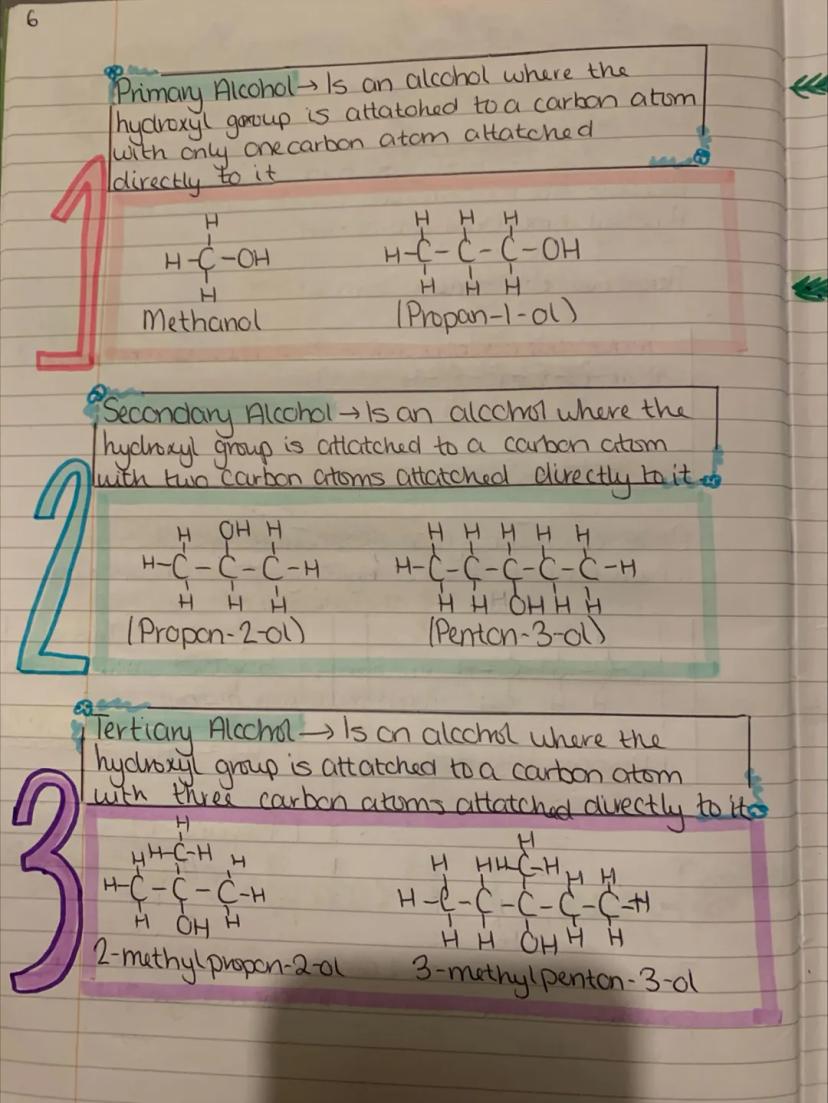 6
Primary Alcohol → Is an alcohol where the
hydroxyl group is attatched to a carbon atom
with only one carbon atom attatched
directly to it
1
H
H
H
H
H-C-OH
H-C-C-C-OH
H
H
H
H
Methanol
(Propan-1-ol)
Secondary Alcohol → Is an alcohol where the
hydroxyl group is attatched to a carbon atom
with two carbon atoms attatched directly to it
2
H OH H
H H H H H
H-C-C-C-H
H-C-C-C-C-C-H
H H H
H H OH H H
(Propan-2-ol)
(Pentan-3-ol)
Tertiary Alcohol → Is an alcohol where the
hydroxyl group is attatched to a carbon atom
with three carbon atoms attatched directly to it
3
H
H
H H-C-H H
H H H-C-H H H
H-C-C-C-H
H-C-C-C-C-C-H
H OH H
H H OH H H
2-methylpropan-2-ol
3-methylpentan-3-ol